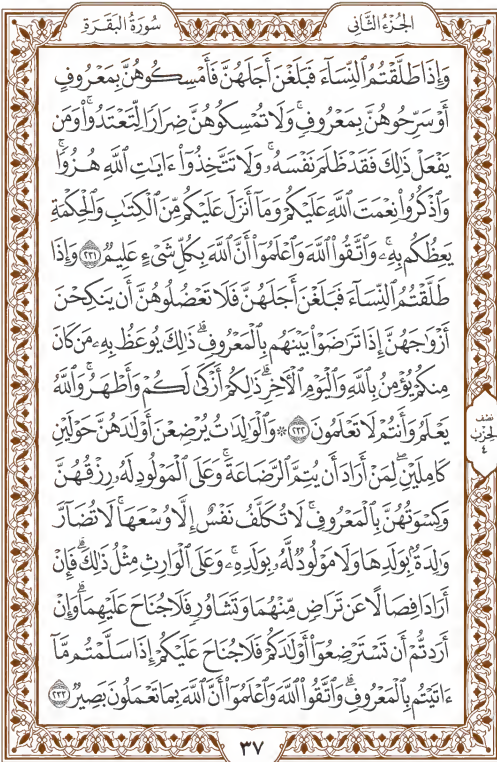 الجزء الثاني
سورة البقرة
وَإِذَا طَلَّقْتُمُ ٱلنِّسَآءَ فَبَلَغْنَ أَجَلَهُنَّ فَأَمْسِكُوهُنَّ بِمَعْرُوفٍ
أَوْ سَرِّحُوهُنَّ بِمَعْرُوفٍۚ وَلَا تُمْسِكُوهُنَّ ضِرَارًا لِّتَعْتَدُوا۟ۚ وَمَن
يَفْعَلْ ذَٰلِكَ فَقَدْ ظَلَمَ نَفْسَهُۥۚ وَلَا تَتَّخِذُوٓا۟ ءَايَـٰتِ ٱللَّهِ هُزُوًاۚ
وَٱذْكُرُوا۟ نِعْمَتَ ٱللَّهِ عَلَيْكُمْ وَمَآ أَنزَلَ عَلَيْكُم مِّنَ ٱلْكِتَـٰبِ وَٱلْحِكْمَةِ
يَعِظُكُم بِهِۦۚ وَٱتَّقُوا۟ ٱللَّهَ وَٱعْلَمُوٓا۟ أَنَّ ٱللَّهَ بِكُلِّ شَىْءٍ عَلِيمٌ ٢٣١ وَإِذَا
طَلَّقْتُمُ ٱلنِّسَآءَ فَبَلَغْنَ أَجَلَهُنَّ فَلَا تَعْضُلُوهُنَّ أَن يَنكِحْنَ
أَزْوَٰجَهُنَّ إِذَا تَرَٰضَوْا۟ بَيْنَهُم بِٱلْمَعْرُوفِۗ ذَٰلِكَ يُوعَظُ بِهِۦ مَن كَانَ
مِنكُمْ يُؤْمِنُ بِٱللَّهِ وَٱلْيَوْمِ ٱلْـَٔاخِرِۗ ذَٰلِكُمْ أَزْكَىٰ لَكُمْ وَأَطْهَرُۚ وَٱللَّهُ
يَعْلَمُ وَأَنتُمْ لَا تَعْلَمُونَ ٢٣٢ ۞ وَٱلْوَٰلِدَٰتُ يُرْضِعْنَ أَوْلَـٰدَهُنَّ حَوْلَيْنِ
كَامِلَيْنِۖ لِمَنْ أَرَادَ أَن يُتِمَّ ٱلرَّضَاعَةَۚ وَعَلَى ٱلْمَوْلُودِ لَهُۥ رِزْقُهُنَّ
وَكِسْوَتُهُنَّ بِٱلْمَعْرُوفِۚ لَا تُكَلَّفُ نَفْسٌ إِلَّا وُسْعَهَاۚ لَا تُضَآرَّ
وَٰلِدَةٌۢ بِوَلَدِهَا وَلَا مَوْلُودٌ لَّهُۥ بِوَلَدِهِۦۚ وَعَلَى ٱلْوَارِثِ مِثْلُ ذَٰلِكَۗ فَإِنْ
أَرَادَا فِصَالًا عَن تَرَاضٍ مِّنْهُمَا وَتَشَاوُرٍ فَلَا جُنَاحَ عَلَيْهِمَاۗ وَإِنْ
أَرَدتُّمْ أَن تَسْتَرْضِعُوٓا۟ أَوْلَـٰدَكُمْ فَلَا جُنَاحَ عَلَيْكُمْ إِذَا سَلَّمْتُم مَّآ
ءَاتَيْتُم بِٱلْمَعْرُوفِۗ وَٱتَّقُوا۟ ٱللَّهَ وَٱعْلَمُوٓا۟ أَنَّ ٱللَّهَ بِمَا تَعْمَلُونَ بَصِيرٌ ٢٣٣
نصف
الحزب
٤
٣٧